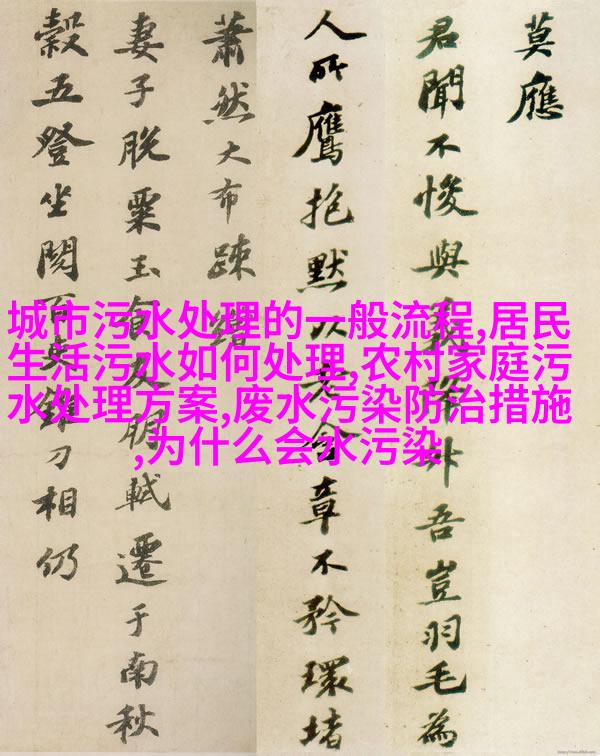 莫應
君聞不悛與 外吾豈羽毛為
人所鷹抱默以老含章不矜環堵
蕭然大布疎
妻子脫粟玉食友朋軾遷于南秋
穀五登坐閱百吏錐刀相仍
城市污水处理的一般流程,居民
生活污水如何处理,农村家庭污
水处理方案,废水污染防治措施
,为什么会水污染